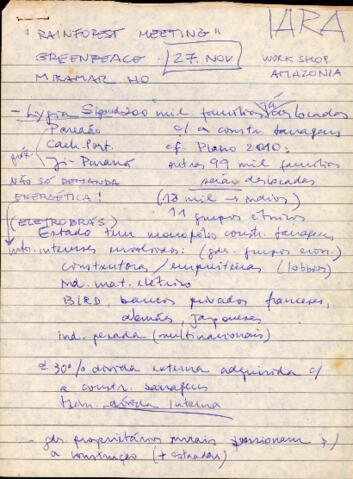 IARA
"RAINFOREST MEETING"
GREENPEACE 27.NOV WORKSHOP
MIRAMAR HO AMAZONIA
- Lygia Sigaud 200 mil famílias já deslocadas
Parnaão c/ a constr. barragens
Cach. Port. cf. Plano 2010;
Ji-Paraná outros 99 mil famílias
NÃO SÓ DEMANDA serão deslocadas
ENERGÉTICA! (13 mil → índios)
11 grupos étnicos
(ELETROBRÁS)
Estado tem monopólio constr. barragens
mto. interesses envolvidos: (gds. grupos econ.)
construtora/empreiteiras (lobbies)
ind. mat. elétrico
BIRD, bancos privados franceses,
alemães, japoneses
ind. pesada (multinacionais)
± 30% dívida externa adquirida c/
a constr. barragens
tem. dívida interna
- gds. proprietários rurais pressionam p/
a construção (+ estradas)